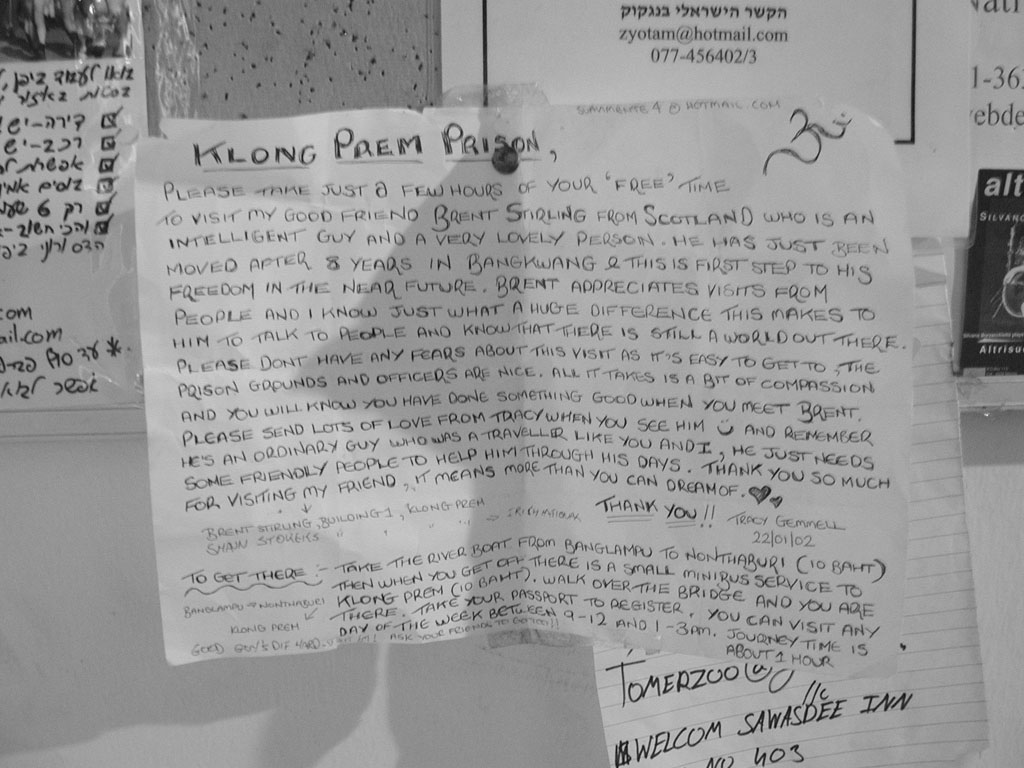 הקשר הישראלי בנגקוק
zyotam@hotmail.com
077-456402/3
1-36
ebde
KLONG PREM PRISON,
PLEASE TAKE JUST A FEW HOURS OF YOUR 'FREE' TIME
TO VISIT MY GOOD FRIEND BRENT STIRLING FROM SCOTLAND WHO IS AN
INTELLIGENT GUY AND A VERY LOVELY PERSON. HE HAS JUST BEEN
MOVED AFTER 8 YEARS IN BANGKWANG & THIS IS FIRST STEP TO HIS
FREEDOM IN THE NEAR FUTURE. BRENT APPRECIATES VISITS FROM
PEOPLE AND I KNOW JUST WHAT A HUGE DIFFERENCE THIS MAKES TO
HIM TO TALK TO PEOPLE AND KNOW THAT THERE IS STILL A WORLD OUT THERE.
PLEASE DONT HAVE ANY FEARS ABOUT THIS VISIT AS IT'S EASY TO GET TO, THE
PRISON GROUNDS AND OFFICERS ARE NICE. ALL IT TAKES IS A BIT OF COMPASSION
AND YOU WILL KNOW YOU HAVE DONE SOMETHING GOOD WHEN YOU MEET BRENT.
PLEASE SEND LOTS OF LOVE FROM TRACY WHEN YOU SEE HIM AND REMEMBER
HE'S AN ORDINARY GUY WHO WAS A TRAVELLER LIKE YOU AND I, HE JUST NEEDS
SOME FRIENDLY PEOPLE TO HELP HIM THROUGH HIS DAYS. THANK YOU SO MUCH
FOR VISITING MY FRIEND, IT MEANS MORE THAN YOU CAN DREAM OF.
THANK YOU!! TRACY GEMMELL
22/01/02
BRENT STIRLING, BUILDING 1, KLONG PREM
SHAIN
TO GET THERE :- TAKE THE RIVER BOAT FROM BANGLAMPU TO NONTHABURI (10 BAHT)
THEN WHEN YOU GET OFF THERE IS A SMALL MINIBUS SERVICE TO
KLONG PREM (10 BAHT). WALK OVER THE BRIDGE AND YOU ARE
THERE. TAKE YOUR PASSPORT TO REGISTER. YOU CAN VISIT ANY
DAY OF THE WEEK BETWEEN 9-12 AND 1-3AM. JOURNEY TIME IS
ABOUT 1 HOUR
BANGLAMPU → NONTHABURI
KLONG PREM
ASK YOUR FRIENDS TO GO TOO!!
TOMERZOO@
WELCOM SAWASDEE INN
NO 403
alt
SILVANO
Altrisuo
com
ail.com